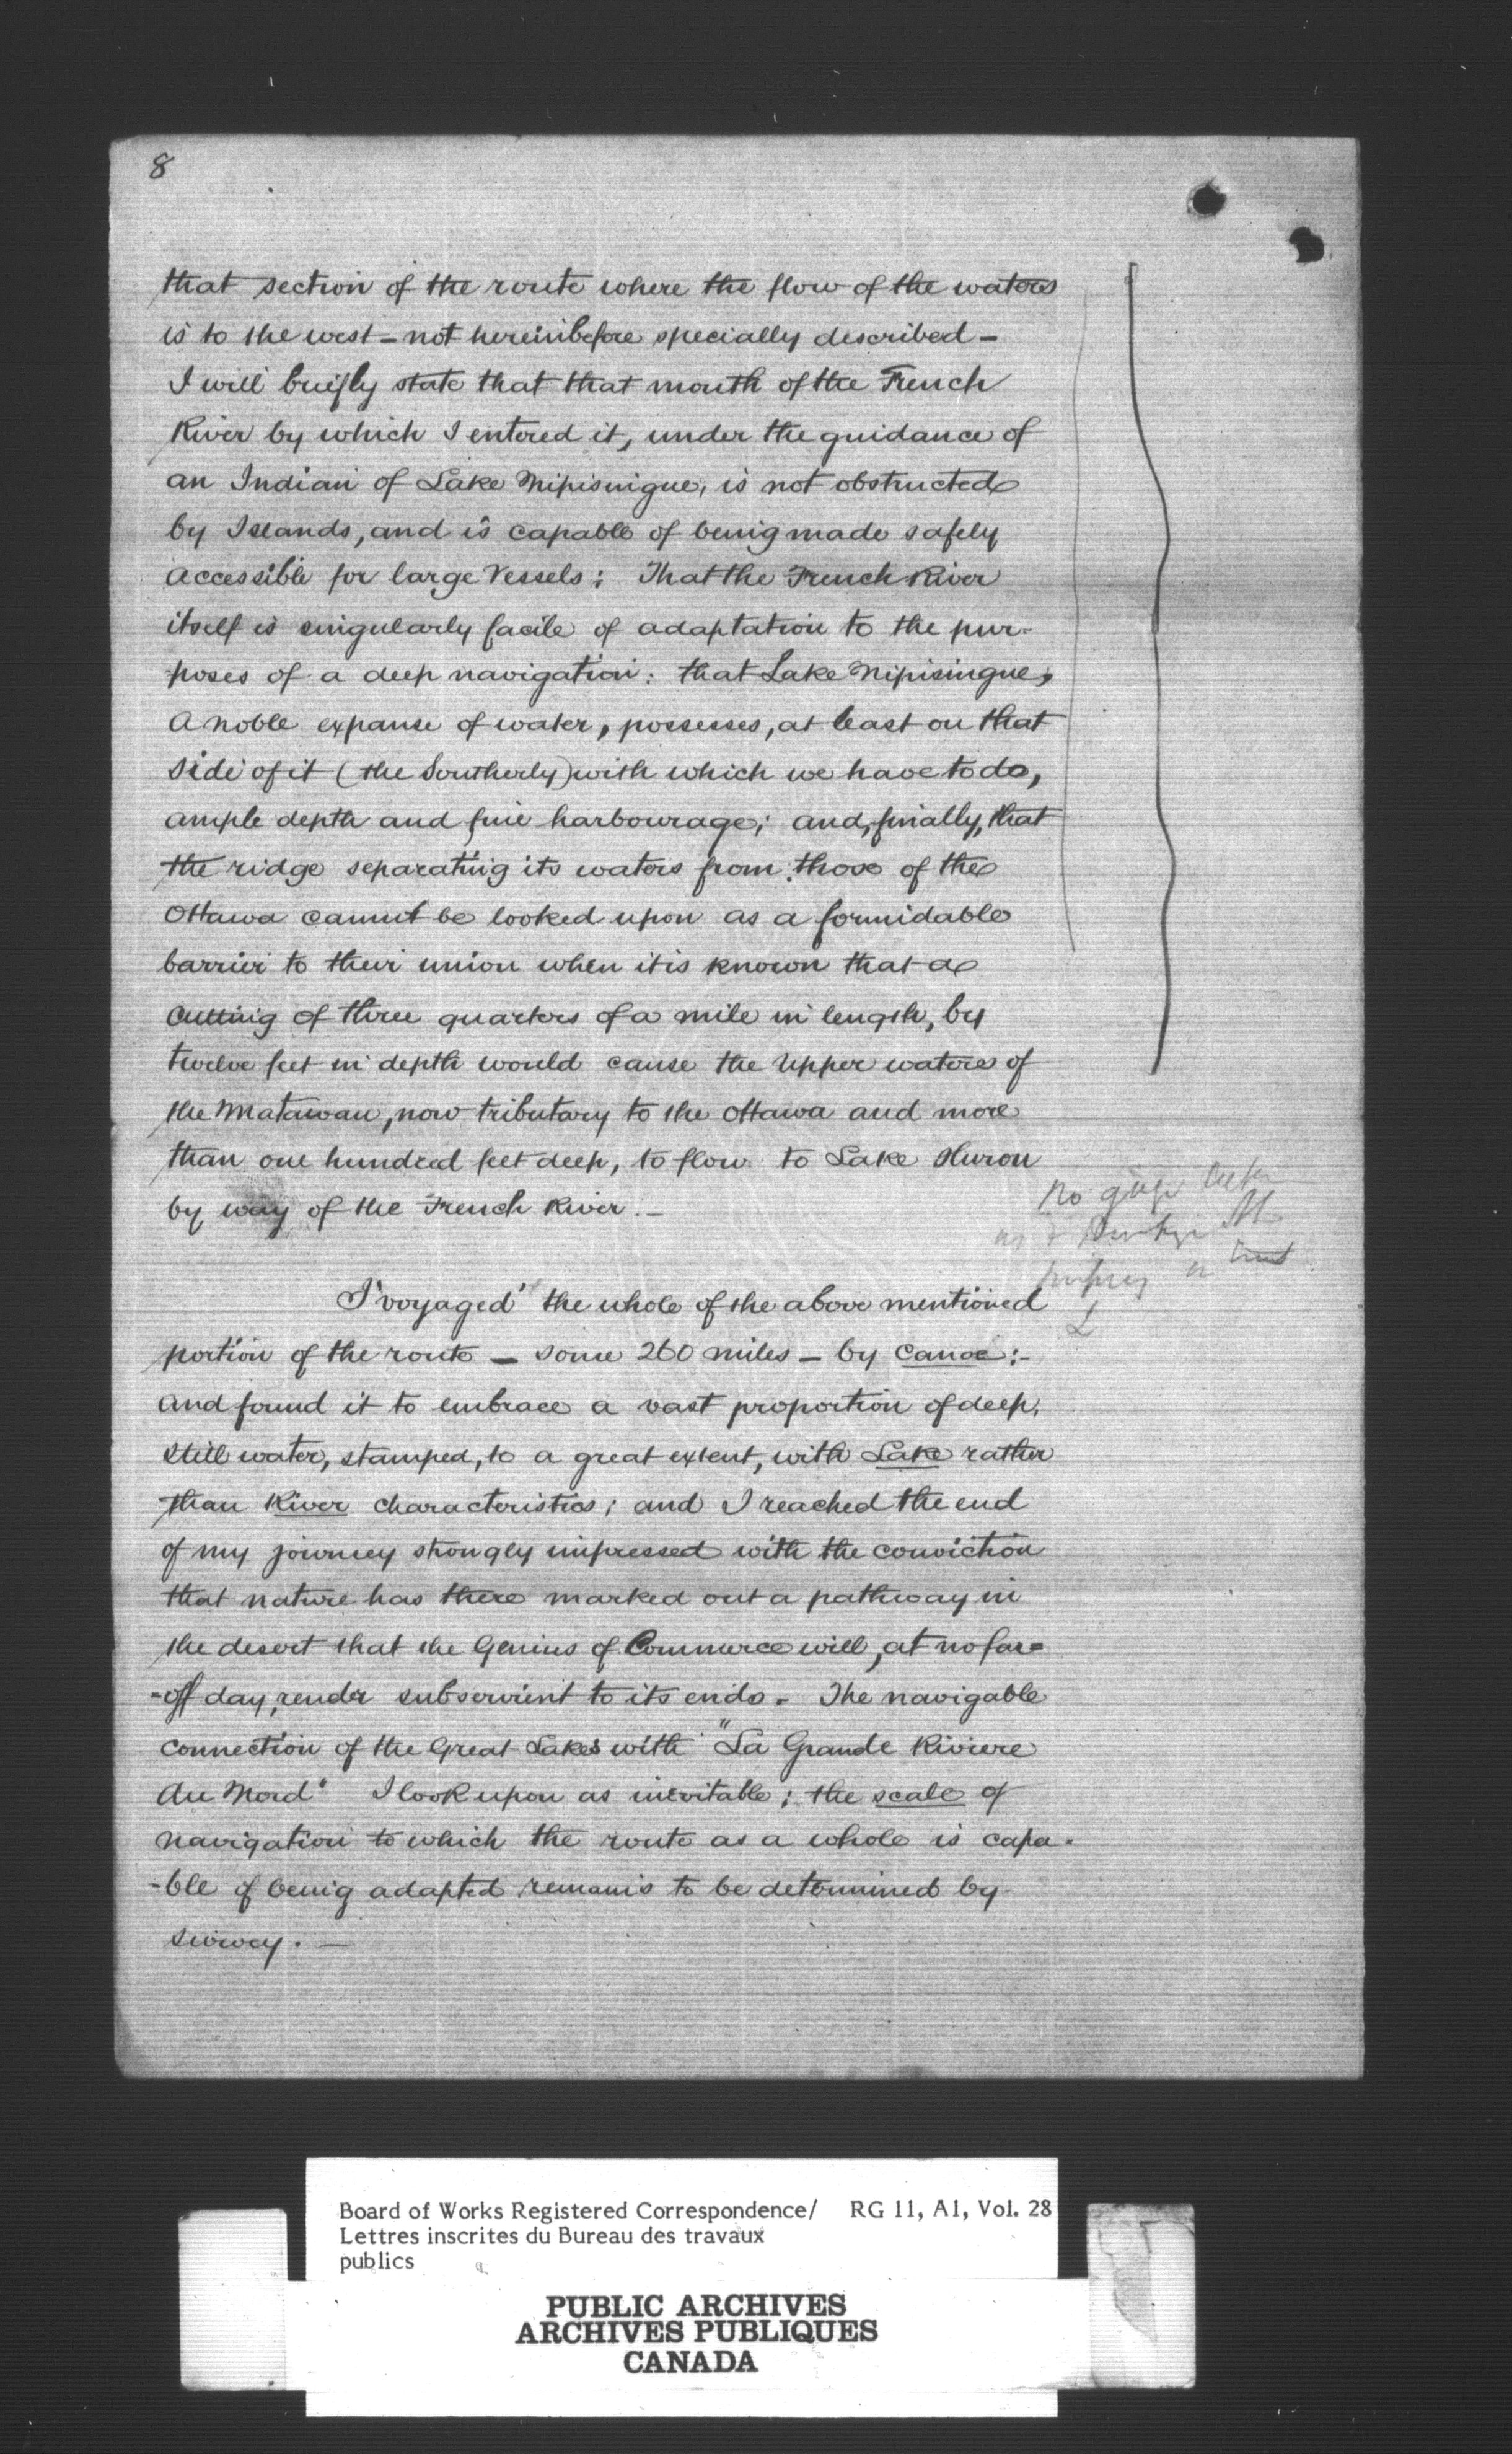 8
that section of the route where the flow of the waters
is to the west – not hereinbefore specially described –
I will briefly state that that mouth of the French
River by which I entered it, under the guidance of
an Indian of Lake Nipisingue, is not obstructed
by Islands, and is capable of being made safely
accessible for large Vessels; That the French River
itself is singularly facile of adaptation to the pur-
poses of a deep navigation: that Lake Nipisingue,
a noble expanse of water, possesses, at least on that
side of it (the Southerly) with which we have to do,
ample depth and fine harbourage; and, finally, that
the ridge separating its waters from those of the
Ottawa cannot be looked upon as a formidable
barrier to their union when it is known that a
cutting of three quarters of a mile in length, by
twelve feet in depth would cause the Upper waters of
the Matawan, now tributary to the Ottawa and more
than one hundred feet deep, to flow to Lake Huron
by way of the French River. –
No
I 'voyaged' the whole of the above mentioned
portion of the route – some 260 miles – by canoe:-
and found it to embrace a vast proportion of deep,
still water, stamped, to a great extent, with Lake rather
than River characteristics; and I reached the end
of my journey strongly impressed with the conviction
that nature has there marked out a pathway in
the desert that the Genius of Commerce will, at no far=
-off day, render subservient to its ends. The navigable
connection of the Great Lakes with "La Grande Riviere
du Nord" I look upon as inevitable; the scale of
navigation to which the route as a whole is capa-
-ble of being adapted remains to be determined by
survey. –
Board of Works Registered Correspondence/ RG 11, A1, Vol. 28
Lettres inscrites du Bureau des travaux
publics
PUBLIC ARCHIVES
ARCHIVES PUBLIQUES
CANADA